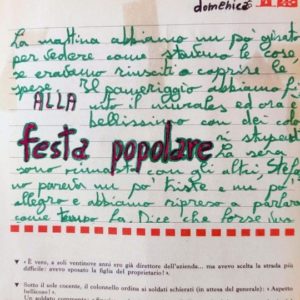 domenica
La mattina abbiamo un pò girato
per vedere come stavano le cose,
se eravamo riusciti a coprire le
spese. Il pomeriggio abbiamo fi
ALLA
nito il murales ed ora è
bellissimo con dei colo
festa popolare
ri stupendi
La sera
sono con gli altri, Stefa
no pareva un po' triste e un po'
allegro e abbiamo ripreso a parlare
come tempo fa. Dice che forse
▼
« È vero, a soli ventinove anni ero già direttore dell'azienda... ma avevo scelta la strada più
difficile: avevo sposato la figlia del proprietario! ».
▼
Sotto il sole cocente, il colonnello ordina ai soldati schierati (in attesa del generale): « Aspetto
bellicoso! ».
Un soldato